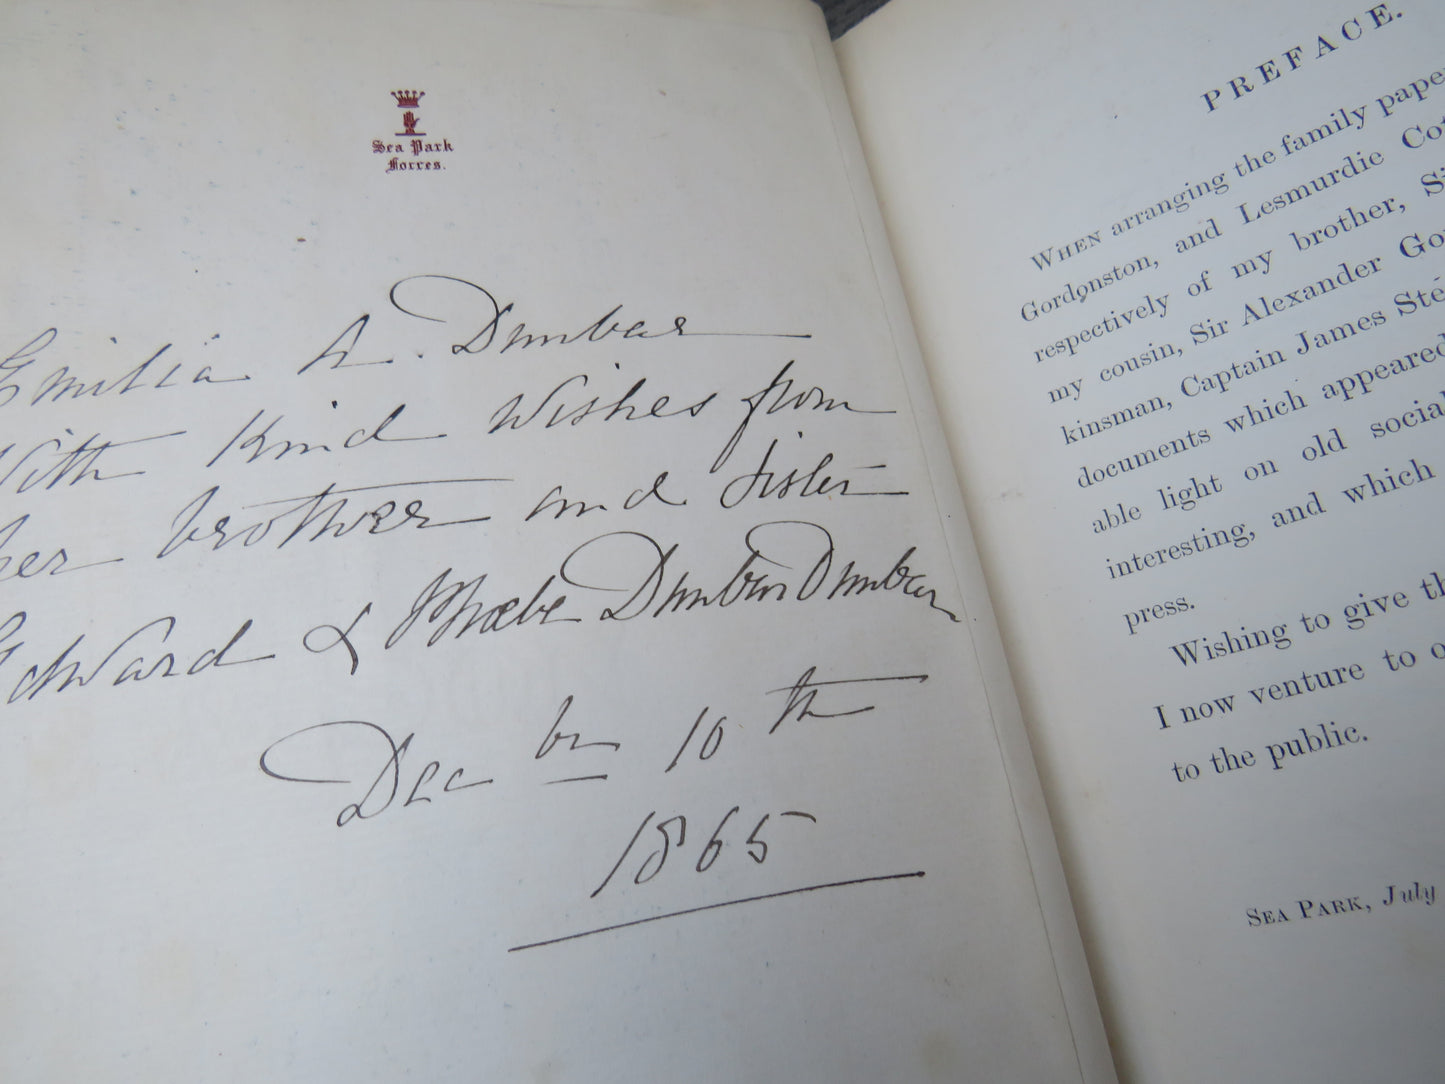 Sea Park
Forres.
Emilia A. Dunbar
With Kind Wishes from
her brother and Sister
Edward & Phœbe Dunbar Dunbar
Decbr 10th
1865
PREFACE.
WHEN arranging the family pape
Gordonston, and Lesmurdie Cot
respectively of my brother, Si
my cousin, Sir Alexander Go
kinsman, Captain James Sté
documents which appeared
able light on old social
interesting, and which
press.
Wishing to give th
I now venture to o
to the public.
SEA PARK, July